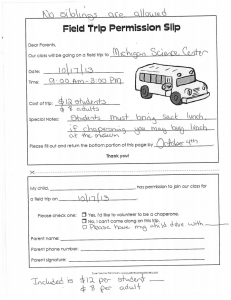 No siblings are allowed
Field Trip Permission Slip
Dear Parents,
Our class will be going on a field trip to Michigan Science Center
Date: 10/17/13
Time: 9:00 AM - 3:00 PM
Cost of trip: $12 students
$8 adults
Special Notes: Students must bring sack lunch
if chaperoning you may buy lunch
at the museum
Please fill out and return the bottom portion of this page by October 4th
Thank you!
My child, has permission to join our class for
a field trip on 10/17/13
Please check one: Yes, I'd like to volunteer to be a chaperone.
No, I can't come along on this trip.
Please have my child drive with
Parent name:
Parent phone number:
Parent signature:
Included is $12 per student
$8 per adult